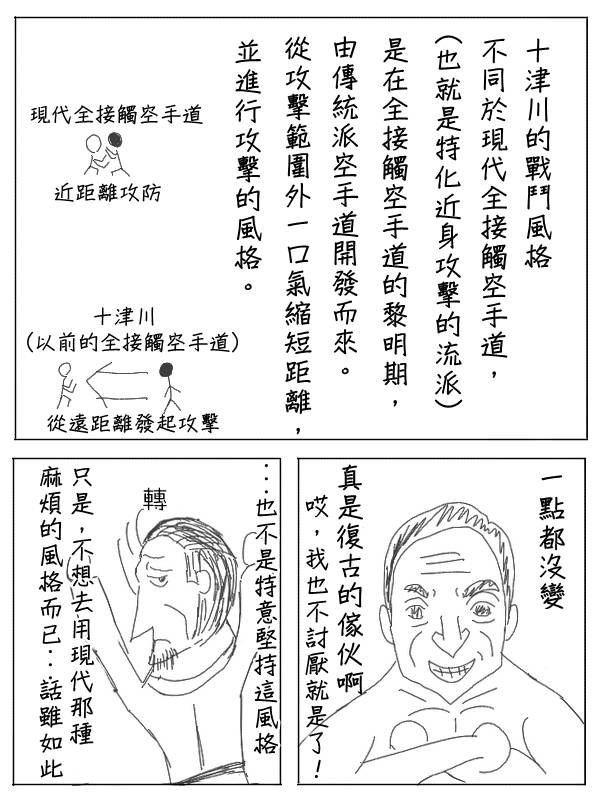 十津川的戰鬥風格
不同於現代全接觸空手道，
(也就是特化近身攻擊的流派)
是在全接觸空手道的黎明期，
由傳統派空手道開發而來。
從攻擊範圍外一口氣縮短距離，
並進行攻擊的風格。
現代全接觸空手道
近距離攻防
十津川
(以前的全接觸空手道)
從遠距離發起攻擊
一點都沒變
真是復古的傢伙啊
哎，我也不討厭就是了！
...也不是特意堅持這風格
轉
只是，不想去用現代那種
麻煩的風格而已...話雖如此